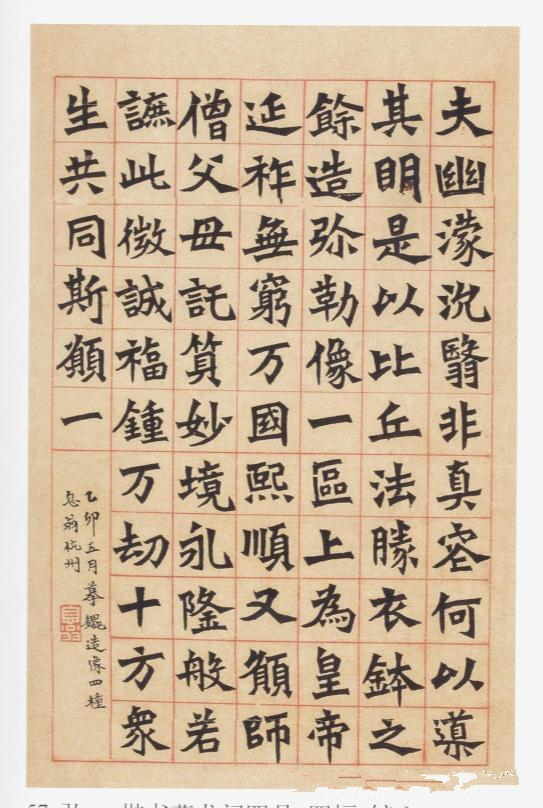 夫幽濛沉翳非真容何以導
其明是以比丘法勝衣鉢之
餘造弥勒像一區上為皇帝
延祚無窮万國熙順又願師
僧父母託算妙境永隆般若
謶此微誠福鍾万劫十方眾
生共同斯願一
乙卯五月摹魏造像四種
息翁杭州